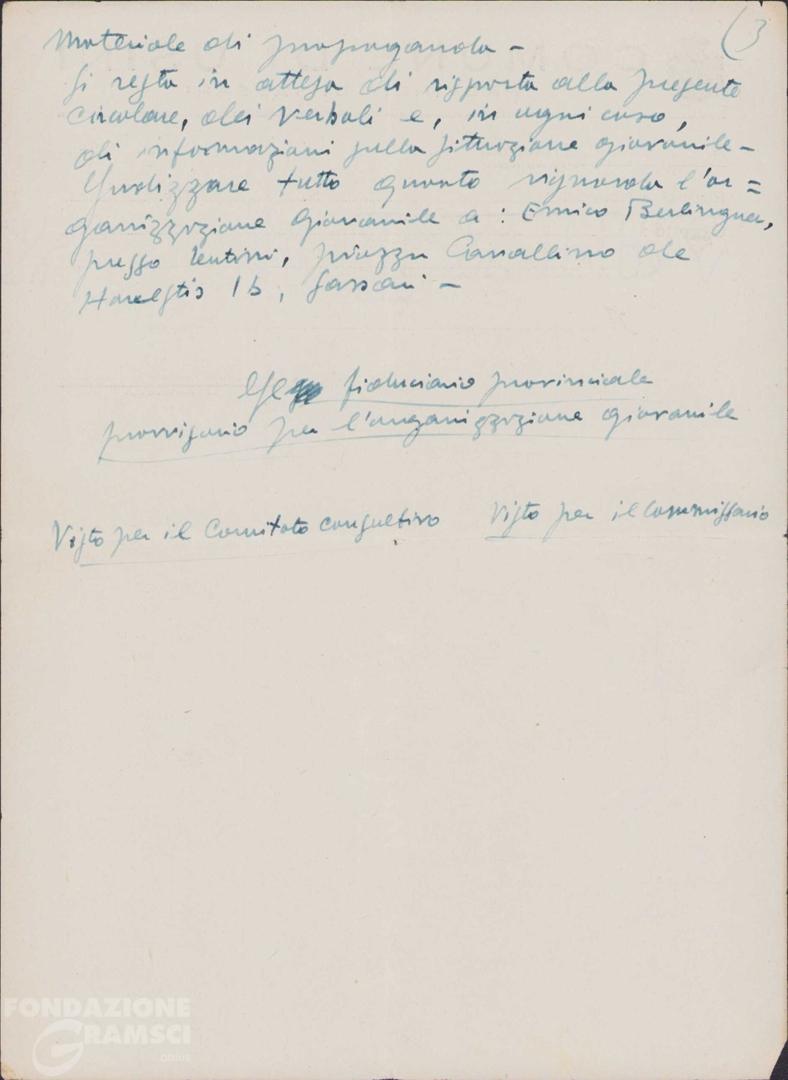 (3
materiale di propaganda -
Si resta in attesa di risposta alla presente
circolare, dei verbali e, in ogni caso,
di informazioni sulla situazione giovanile -
Indirizzare tutto quanto riguarda l'or=
ganizzazione giovanile a: Enrico Berlinguer,
presso Pintori, piazza Cavallino de
Honestis 1b, Sassari -
fiduciario provinciale
provvisorio per l'organizzazione giovanile
Visto per il Comitato consultivo Visto per il Commissario
FONDAZIONE
GRAMSCI
onlus